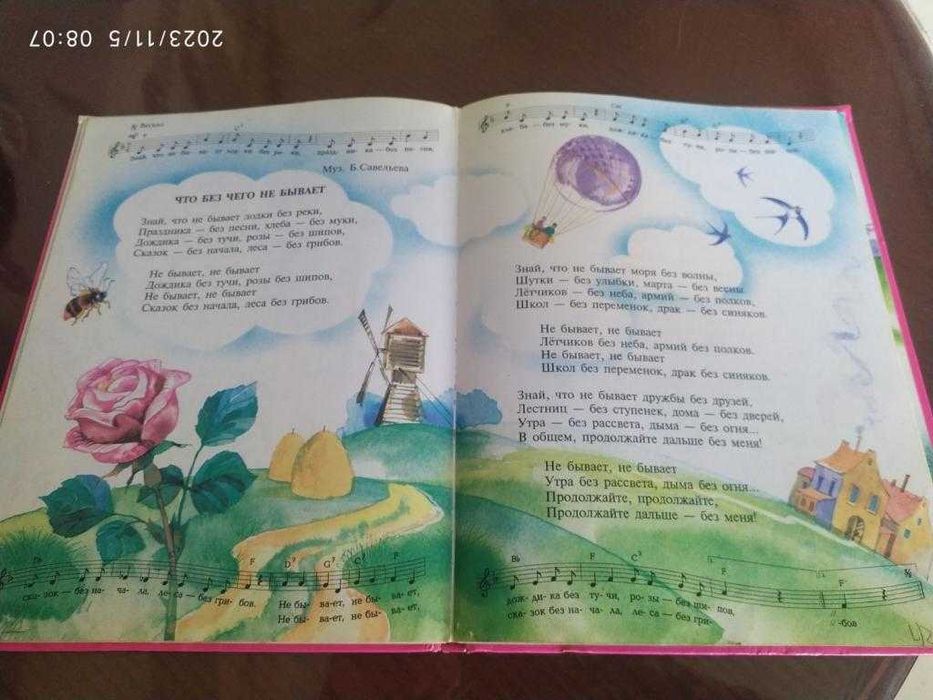 2023/11/5 08:07
Весело
Знай, что не бы- ва- ет лод- ки без ре- ки, празд- ни- ка — без пе- сни,
Муз. Б. Савельева
ЧТО БЕЗ ЧЕГО НЕ БЫВАЕТ
Знай, что не бывает лодки без реки,
Праздника — без песни, хлеба — без муки,
Дождика — без тучи, розы — без шипов,
Сказок — без начала, леса — без грибов.
Не бывает, не бывает
Дождика без тучи, розы без шипов,
Не бывает, не бывает
Сказок без начала, леса без грибов.
F B♭ F D⁷ G⁷ C F
ска- зок — без на- ча- ла, ле- са — без гри- бов. Не бы- ва- ет, не бы- ва- ет,
Не бы- ва- ет, не бы- ва- ет,
F
хле- ба — без му- ки, дож- ди- ка —
без ту- чи, ро- зы — без ши- пов,
Знай, что не бывает моря без волны,
Шутки — без улыбки, марта — без весны
Лётчиков — без неба, армий — без полков,
Школ — без переменок, драк — без синяков.
Не бывает, не бывает
Лётчиков без неба, армий без полков.
Не бывает, не бывает
Школ без переменок, драк без синяков.
Знай, что не бывает дружбы без друзей,
Лестниц — без ступенек, дома — без дверей,
Утра — без рассвета, дыма — без огня...
В общем, продолжайте дальше без меня!
Не бывает, не бывает
Утра без рассвета, дыма без огня...
Продолжайте, продолжайте,
Продолжайте дальше — без меня!
B♭ F C⁷ F F
дож- ди- ка без ту- чи, ро- зы — без ши- пов,
ска- зок без на- ча- ла, ле- са — без гри- -бов